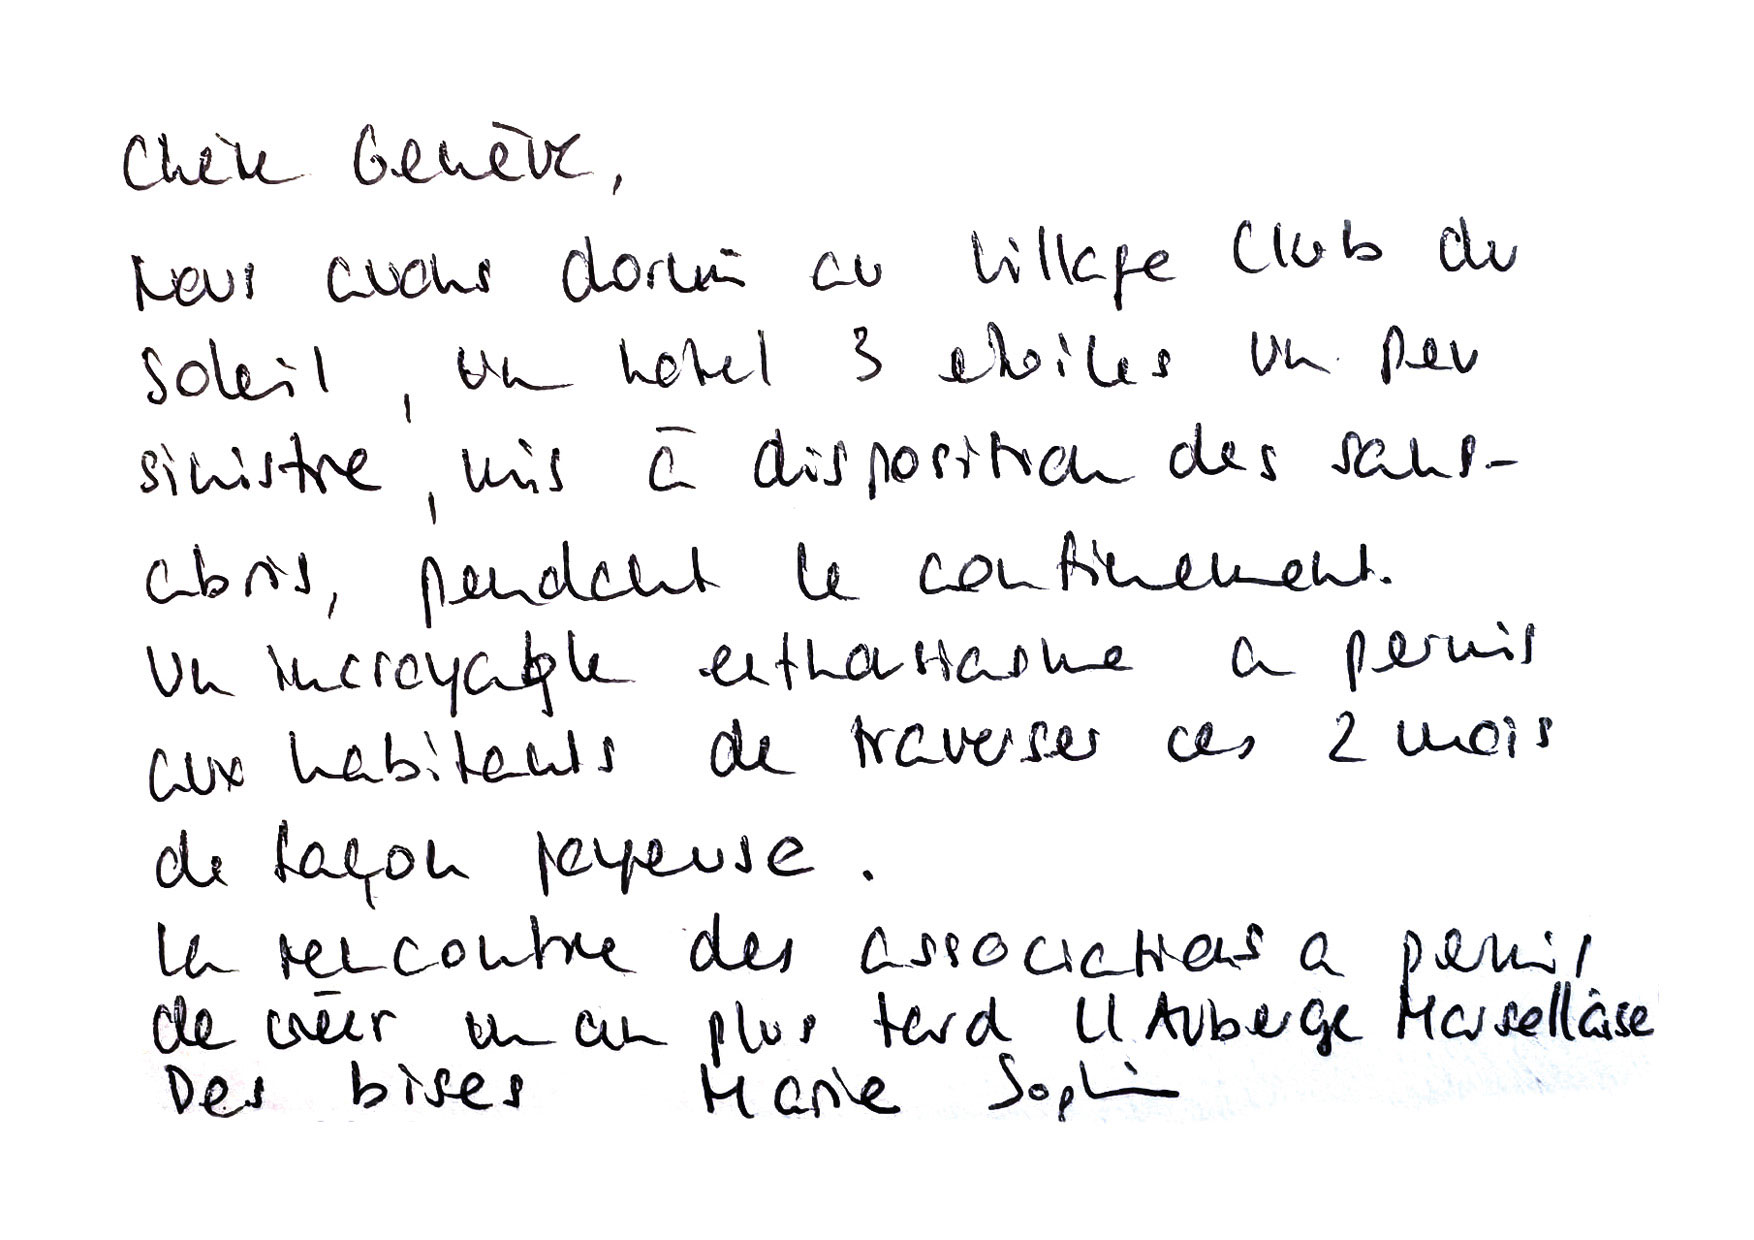 Chère Genève,
Nous avons dormi au Village Club du
Soleil, un hotel 3 etoiles un peu
sinistre, mis à disposition des sans-
abris, pendant le confinement.
Un incroyable enthousiasme a permis
aux habitants de traverser ces 2 mois
de façon joyeuse.
La rencontre des associations a permis
de créer un an plus tard L'Auberge Marsellaise
Des bises Marie Sophie